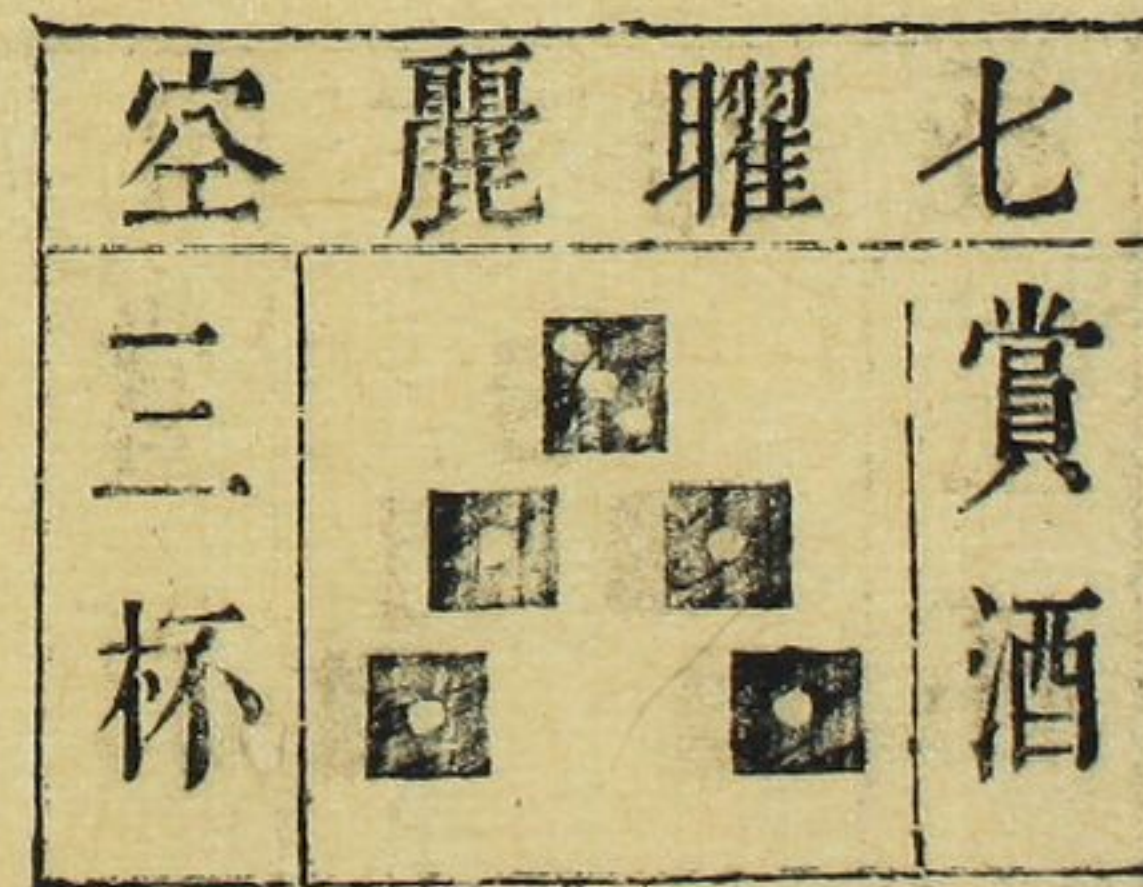 七曜麗空
賞酒
三杯